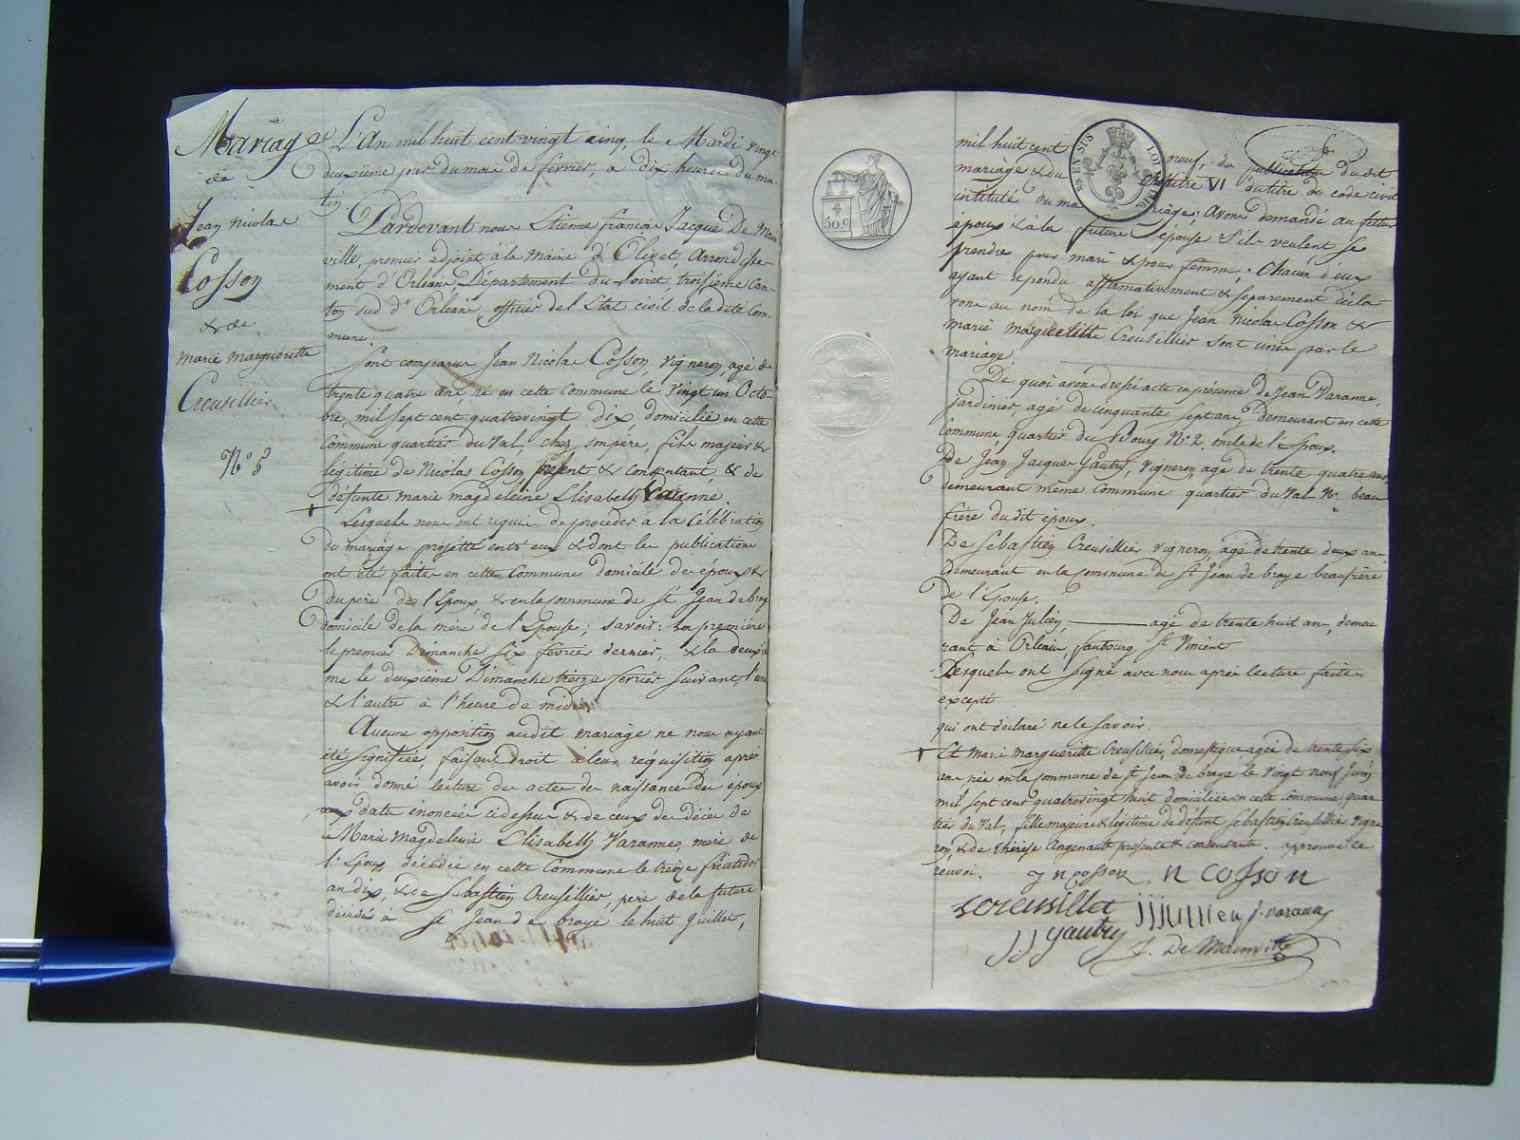 Mariage
de
Jean Nicolas
Cosson
& de
marie margueritte
Creusillier
N.° 5
L'An mil huit cent vingt cinq, le Mardi vingt
deuxième jour du mois de fevrier, à dix heures du ma-
tin
Pardevant nous Etienne françois Jacque De Main
ville, premier adjoint à la mairie d'Olivet, Arrondisse-
ment d'Orléans, Département du Loiret, troisième Can-
ton sud d'Orléans, officier de l'Etat civil de la dite Com-
mune
Sont comparus Jean Nicolas Cosson, vigneron, agé de
trente quatre ans né en cette Commune le vingt un Octo
bre, mil sept cent quatrevingt dix, domicilié en cette
Commune quartier du Val, chez son père, fils majeur &
légitime de Nicolas Cosson présent & consentant, & de
défunte marie magdeleine Elisabeth Varanne.
Lesquels nous ont requis de procéder à la Célébration
du mariage projetté entr'eux & dont les publications
ont été faites en cette Commune domicile des époux &
du père de l'Epoux, & en la commune de St Jean de braye
domicile de la mère de l'Epouse; savoir: La première
le premier Dimanche six fevrier dernier, & la deuxiè
me le deuxième Dimanche treize fevrier suivant, l'une
& l'autre à l'heure de midi.
Aucune opposition audit mariage ne nous ayant
été signifiée, faisant droit à leur réquisition après
avoir donné lecture des actes de naissance des époux
aux dates énoncées cidessus & de ceux de décès de
Marie Magdeleine Elisabeth Varannes, mère de
l'Epoux, décédée en cette Commune le treize fructidor
an dix, & de Sébastien Creusillier, père de la future
décédé à St Jean de braye le huit Juillet,
mil huit cent neuf, des publications du dit
mariage & du chapitre VI du titre du code civil
intitulé du mariage; Avons demandé au futur
époux & à la future épouse s'ils veulent se
prendre pour mari & pour femme; Chacun d'eux
ayant répondu affirmativement & séparement décla
rons au nom de la loi que Jean Nicolas Cosson &
marie marguerithe Creusillier sont unis par le
mariage.
De quoi avons dressé acte en présence de Jean Varanne,
jardinier, agé de cinquante sept ans, demeurant en cette
Commune, quartier du Bourg N.° 2, oncle de l'Epoux.
De Jean Jacques Gautry, vigneron, agé de trente quatre ans
demeurant même commune quartier du Val N.° beau
frère du dit époux.
De Sébastien Creusillier vigneron, agé de trente deux ans
demeurant en la commune de St Jean de braye beaufrère
de l'Epouse.
De Jean Julien, agé de trente huit ans, demeu
rant à Orléans, faubourg St Vincent
Lesquels ont signé avec nous après lecture faite
excepté
qui ont déclaré ne le savoir.
Et Marie marguerithe Creusillier, domestique agée de trente six
ans née en la commune de St Jean de braye le vingt neuf Juin
mil sept cent quatrevingt huit domiciliée en cette Commune, quar
tier du Val, fille majeure & légitime de défunt Sébastien Creusillier vigne
ron, & de Thérèse Angenault présente & consentante. approuvé ce
renvoi.
J N Cosson N Cosson
S creusillet JJ Jullien J. varanne
J J Gautry
F. De Mainville
50 c